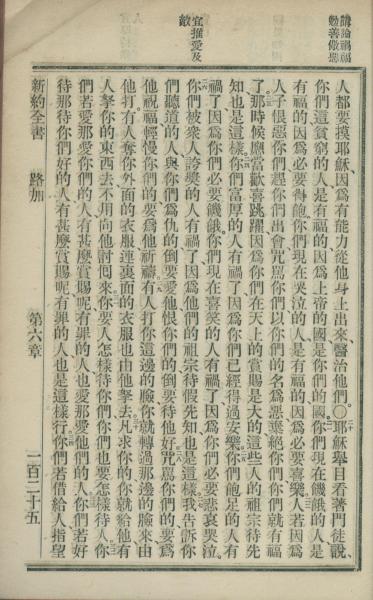 講論禍福
勉善儆惡
宜推愛及
敵
人都要摸耶穌因爲有能力從他身上出來醫治他們○耶穌舉目看着門徒說
你們這貧窮的人是有福的因爲上帝的國是你們的國你們現在饑餓的人是
有福的因爲必要得飽你們現在哭泣的人是有福的因爲必要喜樂人若因爲
人子恨惡你們趕你們出會咒罵你們以你們的名爲惡棄絕你們你們就有福
了那時候應當歡喜跳躍因爲你們在天上的賞賜是大的這些人的祖宗待先
知也是這樣你們富厚的人有禍了因爲你們已經得過安樂你們飽足的人有
禍了因爲你們必要饑餓你們現在喜笑的人有禍了因爲你們必要悲哀哭泣
你們被衆人誇獎的人有禍了因爲他們的祖宗待假先知也是這樣我告訴你
們聽道的人與你們爲仇的倒要愛他恨你們的倒要待他好咒罵你們的要爲
他祝福輕慢你們的要爲他祈禱有人打你這邊的臉你就轉過那邊的臉來由
他打有人奪你外面的衣服連裏面的衣服也由他拏去凡求你的你就給他有
人拏你的東西去不用向他討囘來你要人怎樣待你們你們也要怎樣待人你
們若愛那愛你們的人有甚麼賞賜呢有罪的人也愛那愛他們的人你們若好
待那待你們好的人有甚麼賞賜呢有罪的人也是這樣行你們若借給人指望
新約全書 路加 第六章 一百二十五